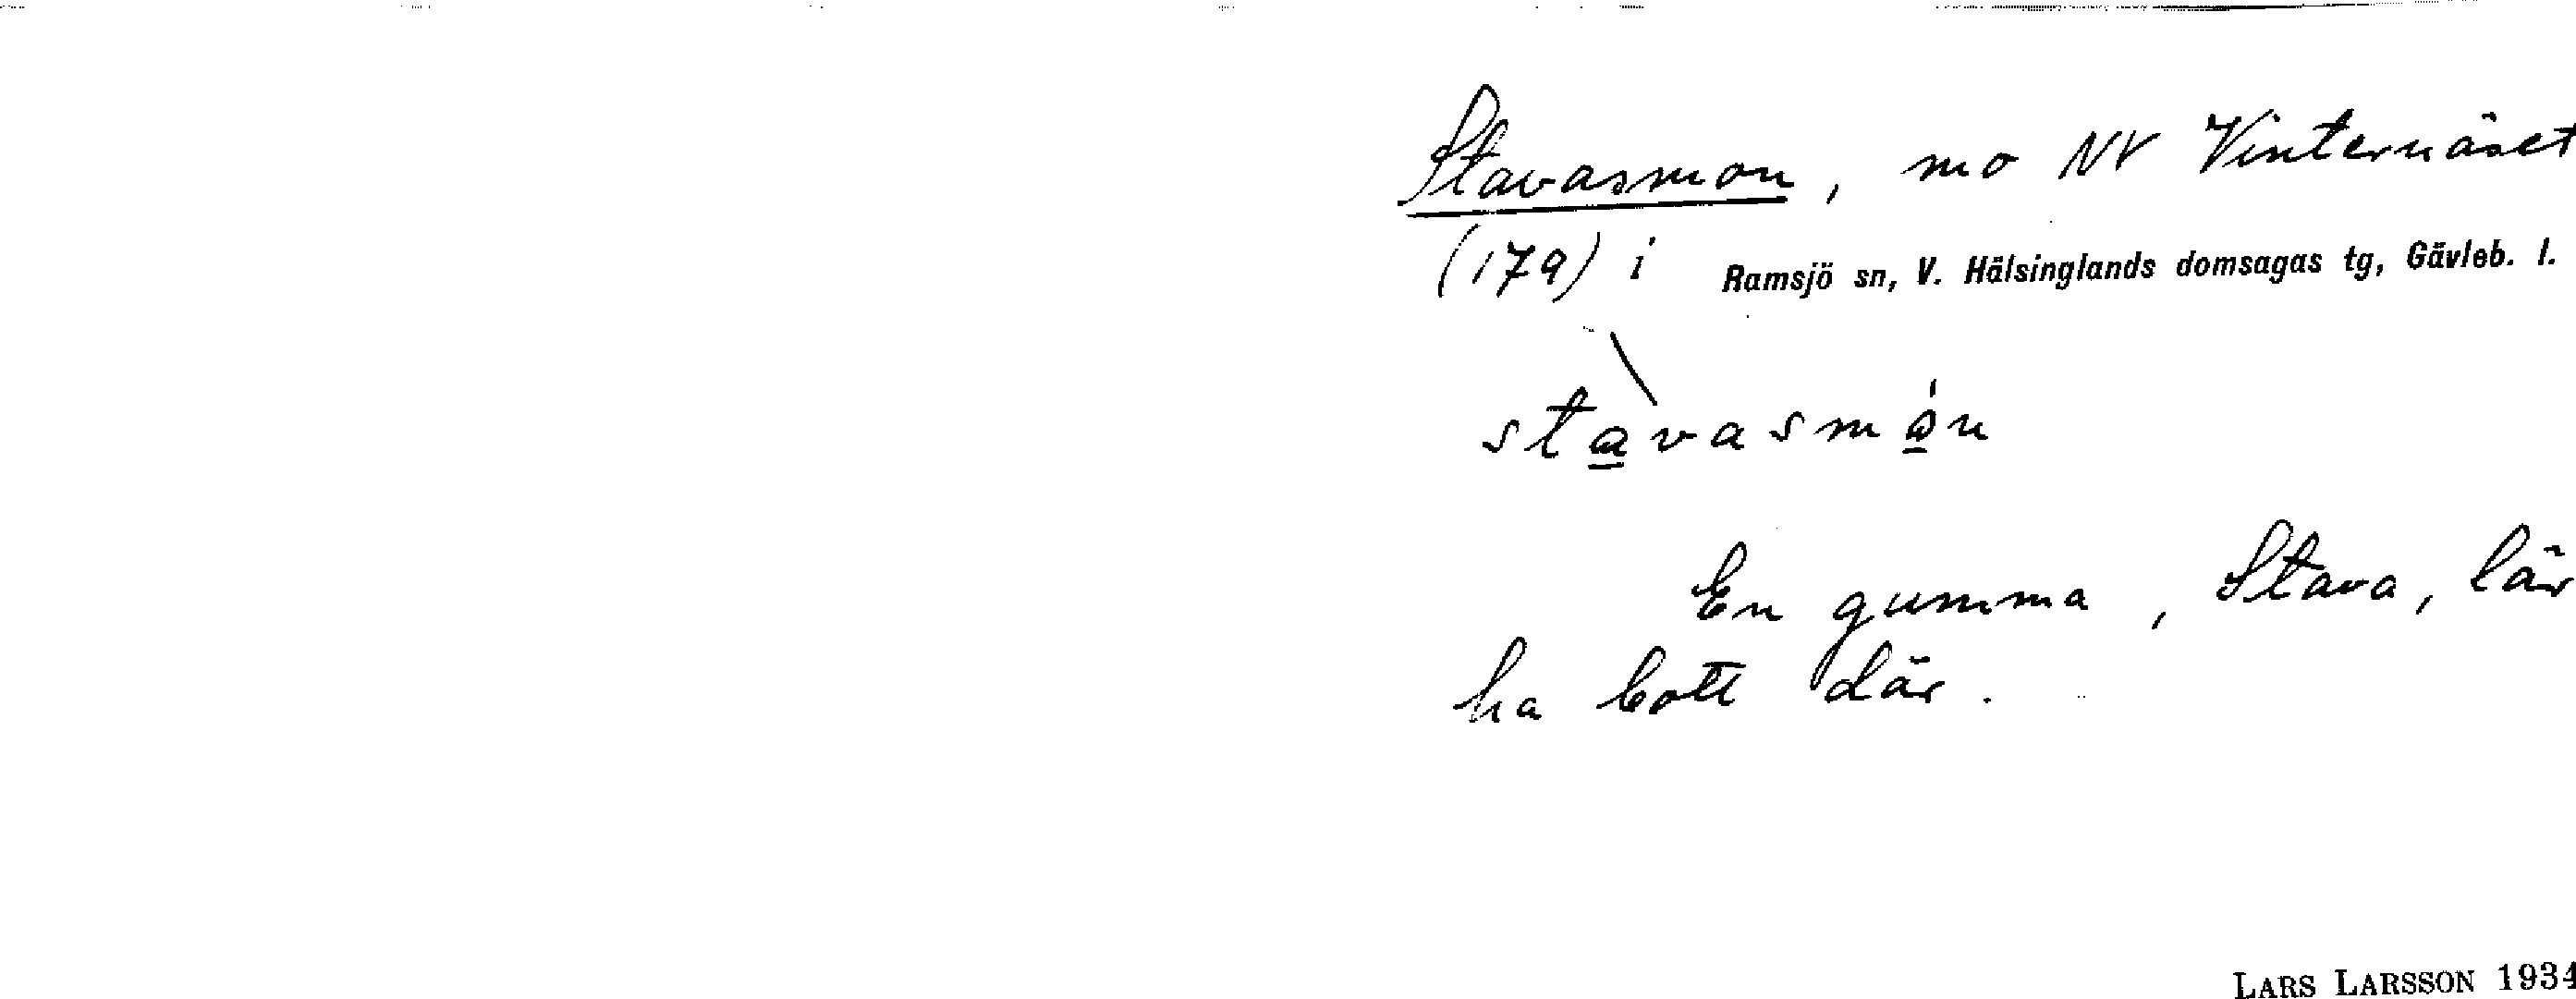 Stavasmon, mo NV Vinternäset
(179) i Ramsjö sn, V. Hälsinglands domsagas tg, Gävleb. l.
stavasmån
En gumma, Stava, lär
ha bott där.
LARS LARSSON 1934